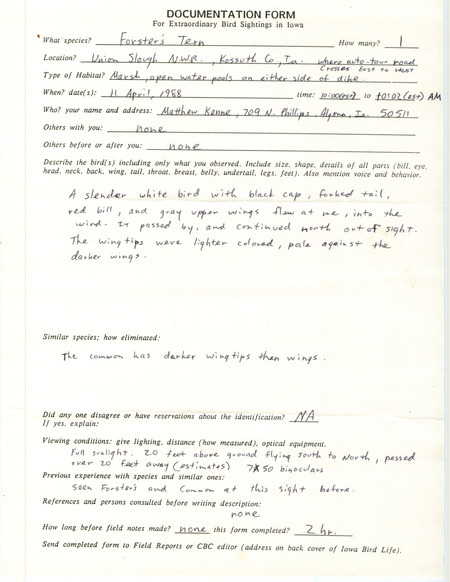 DOCUMENTATION FORM
For Extraordinary Bird Sightings in Iowa
What species? Forster's Tern How many? 1
Location? Union Slough N.W.R., Kossuth Co., Ia. where auto-tour road
crosses east to west
Type of Habitat? Marsh, open water pools on either side of dike.
When? date(s): 11 April, 1988 time: 10:00(est) to 10:02 (est) AM
Who? your name and address: Matthew Kenne, 709 N. Phillips, Algona, Ia. 50511
Others with you: none
Others before or after you: none
Describe the bird(s) including only what you observed. Include size, shape, details of all parts (bill, eye,
head, neck, back, wing, tail, throat, breast, belly, undertail, legs, feet). Also mention voice and behavior.
A slender white bird with black cap, forked tail,
red bill, and gray upper wings flew at me, into the
wind. It passed by, and continued north out of sight.
The wingtips were lighter colored, pale against the
darker wings.
Similar species; how eliminated:
The common has darker wingtips than wings.
Did any one disagree or have reservations about the identification? NA
If yes, explain:
Viewing conditions: give lighting, distance (how measured), optical equipment.
Full sunlight. 20 feet above ground flying south to North, passed
over 20 feet away (estimates) 7X50 binoculars
Previous experience with species and similar ones:
seen Forster's and Common at this sight before.
References and persons consulted before writing description:
none
How long before field notes made? none this form completed? 2 hr.
Send completed form to Field Reports or CBC editor (address on back cover of Iowa Bird Life).